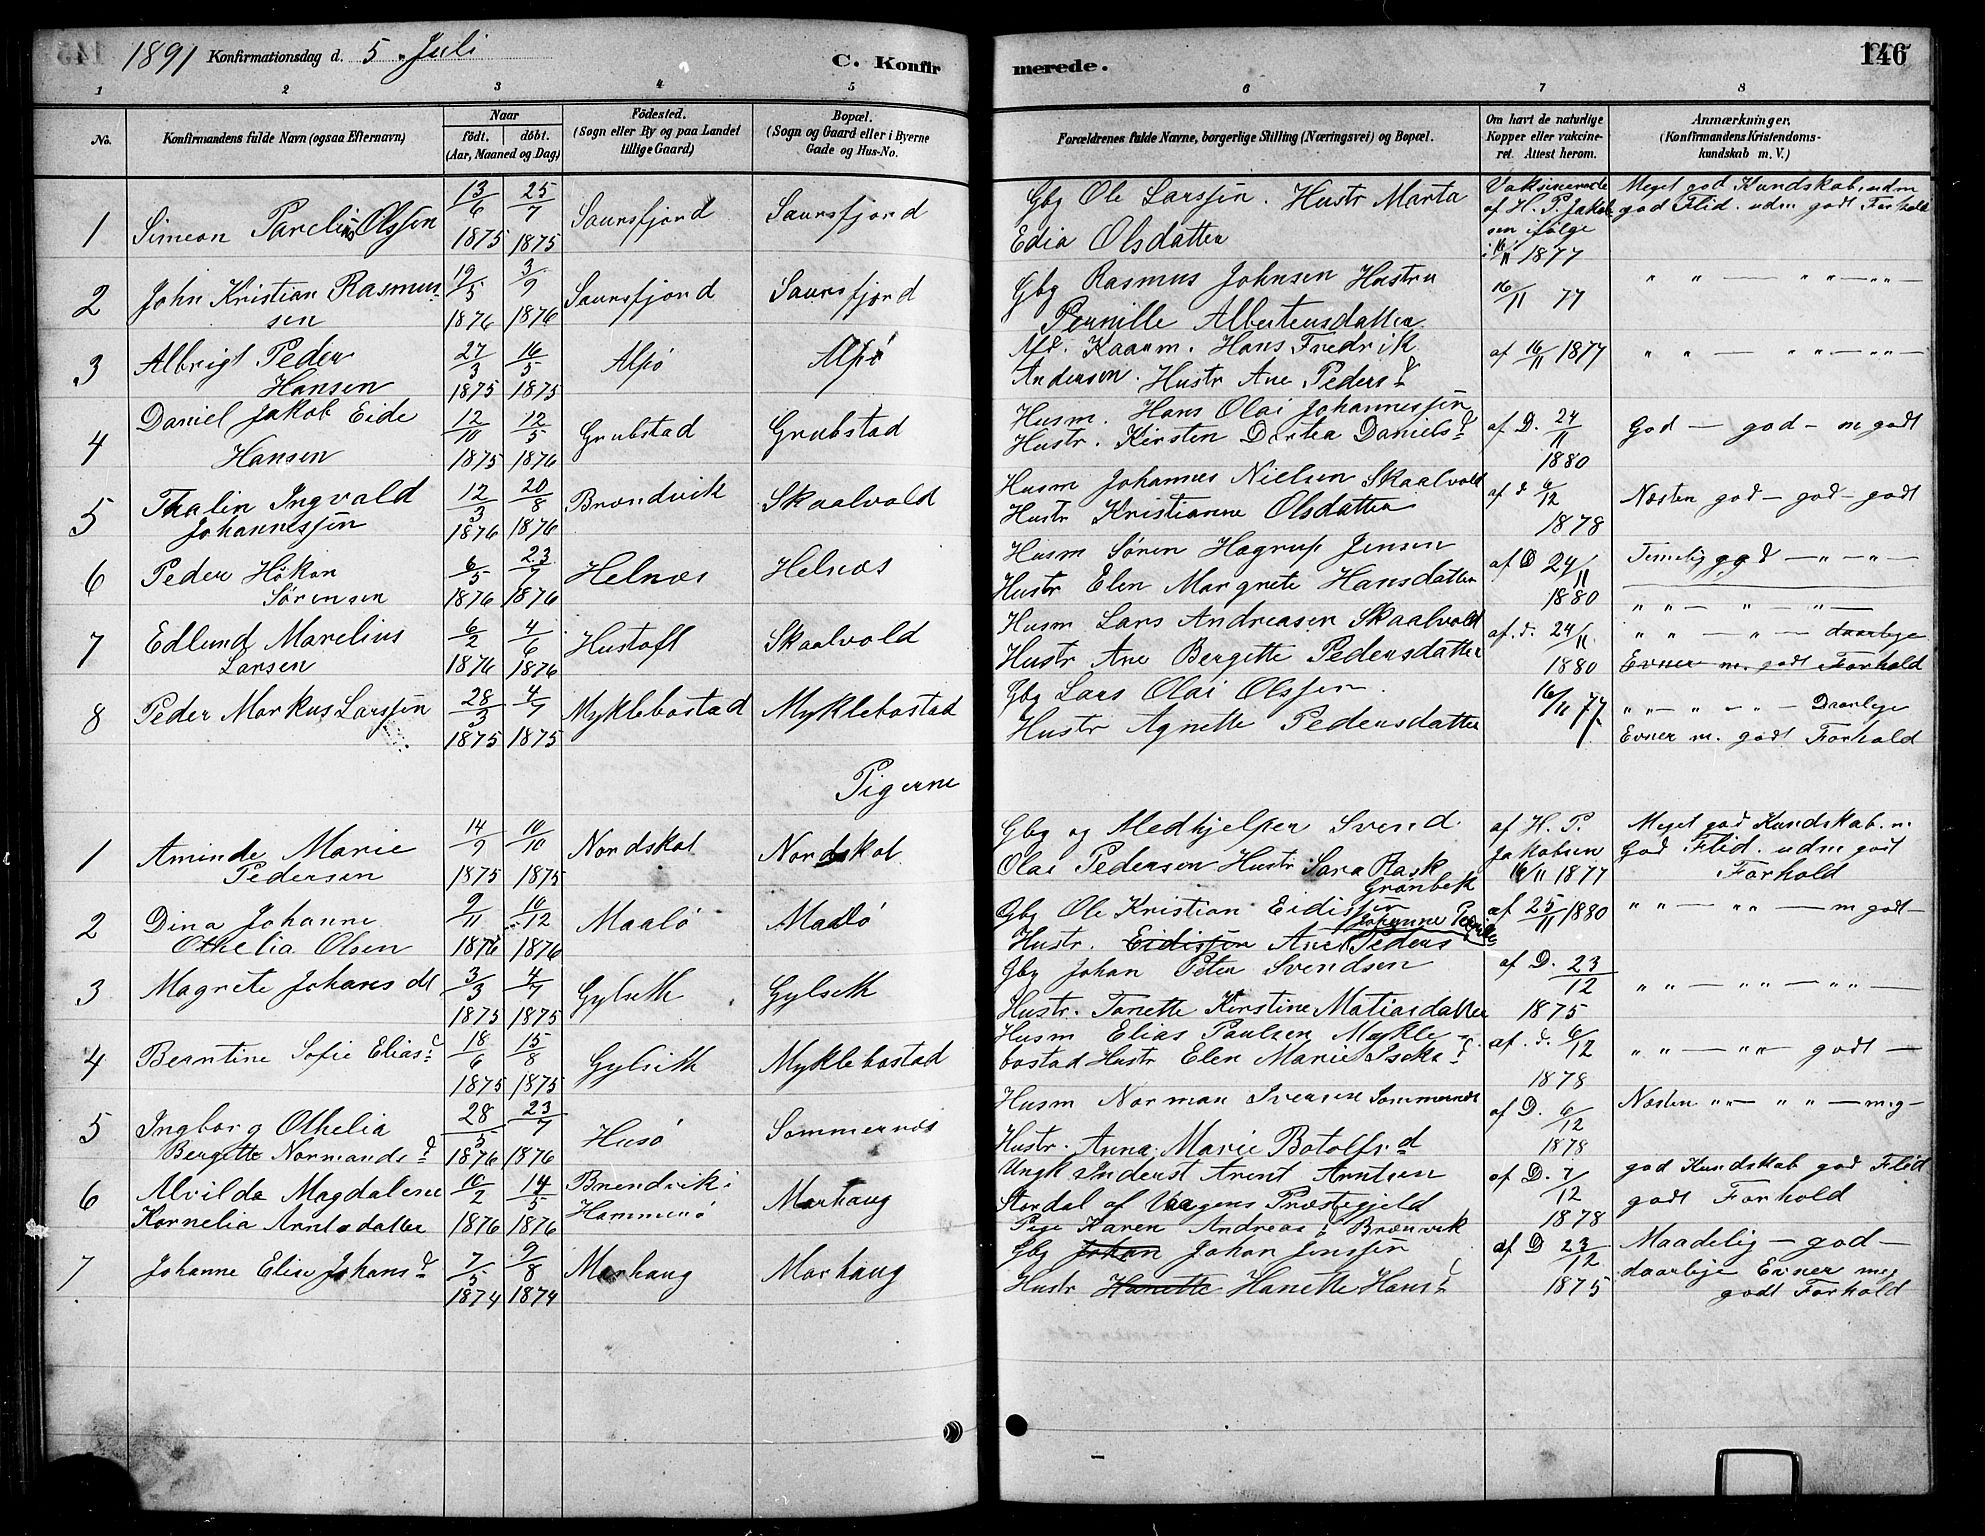 1891 Konfirmationsdag d. 5. Juli
C. Konfirmerede.
146
1 2 3 4 5 6 7 8
No.
Konfirmandens fulde Navn (ogsaa Efternavn)
Naar
födt. döbt.
(Aar, Maaned og Dag)
Födested.
(Sogn eller By og paa Landet
tillige Gaard)
Bopæl.
(Sogn og Gaard eller i Byerne
Gade og Hus-No.
Forældrenes fulde Navne, borgerlige Stilling (Næringsvei) og Bopæl.
Om havt de naturlige
Kopper eller vakcine-
ret. Attest herom.
Anmærkninger,
(Konfirmandens Kristendoms-
kundskab m. V.)
1 Simeon Parelius Olssen 13/6 1875 25/7 1875 Saursfjord Saursfjord
Gbg Ole Larssen. Hustr Marta
Edia Olsdatter
Vaksinerede
af H. P. Jakob
sen ifølge
16/11 1877
Meget god Kundskab, udm
god Flid. udm godt Forhold
2 John Kristian Rasmus-
sen 19/5 1876 3/9 1876 Saursfjord Saursfjord
Gbg Rasmus Johnsen Hustru
Pernille Albertensdatter
16/11 77
" " — " " — " —
3 Albrigt Peder
Hansen 27/3 1875 16/5 1875 Alpö Alpö
Kaarm. Hans Fredrik
Andersen. Hustr Ane Peders d
af 16/11 1877
" " — " " — " —
4 Daniel Jakob Eide
Hansen 12/10 1875 12/5 1876 Grubstad Grubstad
Husm. Hans Olai Johannessen
Hustr. Kirsten Dortea Daniels d
af D. 24/11
1880
God — god — m godt
5 Thalin Ingvald
Johannessen 12/3 1876 20/8 1876 Brændvik Skaalvold
Husm Johannes Nielsen Skaalvold
Hustr Kristianne Olsdatter
af d 6/12
1878
Næsten god — god — godt
6 Peder Håkon
Sørensen 6/5 1876 23/7 1876 Helnæs Helnæs
Husm Sören Hagrup Jensen
Hustr Elen Margrete Hansdatter
af D 24/11
1880
Temelig god — " — " —
7 Edlund Marelius
Larsen 6/2 1876 4/6 1876 Hustoft Skaalvold
Husm Lars Andreasen Skaalvold
Hustr Ane Bergette Pedersdatter
af. d. 24/11
1880
" " — " — " —
" " — " — daarlige
Evner m. godt Forhold
8 Peder Markus Larssen 28/3 1875 4/7 1875 Myklebostad Myklebostad
Gbg Lars Olai Olssen.
Hustr Agnette Pedersdatter
16/11 77.
" " — " — " — Daarlige
Evner m. godt Forhold
Pigerne
1 Aminde Marie
Pedersen 14/9 1875 10/10 1875 Nordskot Nordskot
Gbg og Medhjelper Svend
Olai Pedersen Hustr Sara Rask
Grønbek
af H. P.
Jakobsen
16/11 1877
Meget god Kundskab. m.
God Flid. udm godt
Forhold
2 Dina Johanne
Othelia Olsen 9/11 1876 10/12 1876 Maalö Maalö
Gbg Ole Kristian Eidissen
Hustr. Eidissen Ane Peders
Johanne
af 25/11 1880
" " — " " — m godt —
3 Magrete Johans dt 3/3 1875 4/7 1875 Gylseth Gylseth
Gbg Johan Peter Svendsen
Hustr. Tanette Kirstine Matiasdatter
af D. 23/12
1875
" " — " " — " " —
4 Berntine Sofie Elias d 18/6 1875 15/8 1875 Gylseth Myklebostad
Husm Elias Paulsen Mykle-
bostad Hustr Elen Marie Isaks d
af. d. 6/12
1878
" " — " " — godt —
5 Ingborg Othelia
Bergitte Normands d 28/5 1876 23/7 1876 Husö Sommernes
Husm Norman Iversen Sommernes
Hustr. Anna Marie Botolfs d
af D. 6/12
1878
Næsten " — " " — m.g —
6 Alvilde Magdalene
Kornelia Arntsdatter 10/2 1876 14/5 1876 Brændvik i
Hammerö Marhaug
Ungk Inderst Arent Arntsen
Stordal af Vaagens Præstegjeld
Pige Karen Andreas d Brænvik
af D. 7/12
1878
god Kundskab god Flid
godt Forhold
7 Johanne Elise Johans d 7/5 1874 9/8 1874 Marhaug Marhaug
Gbg Johan Johan Jenssen
Hustr Hanette Hanette Hans d
af D 23/12
1875
Maadelig — god —
daarlige Evner meg
godt Forhold